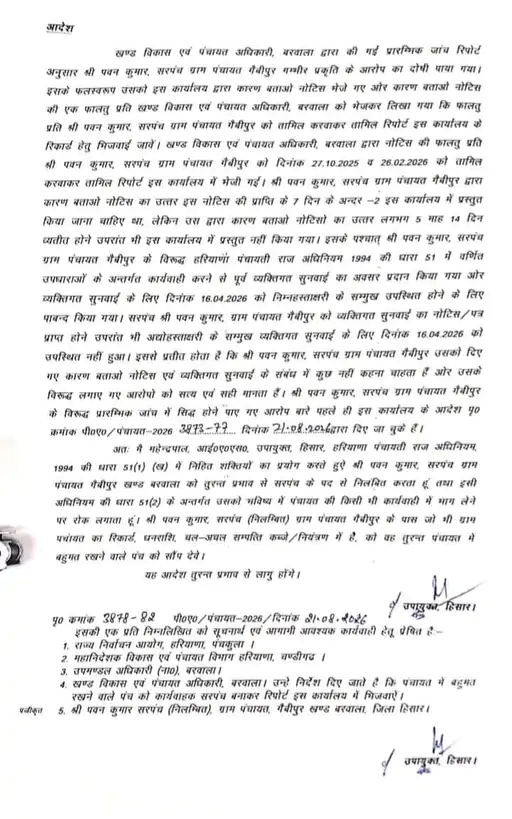 आदेश
खण्ड विकास एवं पंचायत अधिकारी, बरवाला द्वारा की गई प्रारम्भिक जांच रिपोर्ट
अनुसार श्री पवन कुमार, सरपंच ग्राम पंचायत गैबीपुर गम्भीर प्रकृति के आरोप का दोषी पाया गया।
इसके फलस्वरूप उसको इस कार्यालय द्वारा कारण बताओ नोटिस भेजे गए ओर कारण बताओ नोटिस
की एक फालतु प्रति खण्ड विकास एवं पंचायत अधिकारी, बरवाला को भेजकर लिखा गया कि फालतु
प्रति श्री पवन कुमार, सरपंच ग्राम पंचायत गैबीपुर को तामिल करवाकर तामिल रिपोर्ट इस कार्यालय के
रिकार्ड हेतु भिजवाई जावें। खण्ड विकास एवं पंचायत अधिकारी, बरवाला द्वारा नोटिस की फालतु प्रति
श्री पवन कुमार, सरपंच ग्राम पंचायत गैबीपुर को दिनांक 27.10.2025 व 26.02.2026 को तामिल
करवाकर तामिल रिपोर्ट इस कार्यालय में भेजी गई। श्री पवन कुमार, सरपंच ग्राम पंचायत गैबीपुर द्वारा
कारण बताओ नोटिस का उत्तर इस नोटिस की प्राप्ति के 7 दिन के अन्दर –2 इस कार्यालय में प्रस्तुत
किया जाना चाहिए था, लेकिन उस द्वारा कारण बताओ नोटिसो का उत्तर लगभग 5 माह 14 दिन
व्यतीत होने उपरांत भी इस कार्यालय में प्रस्तुत नहीं किया गया। इसके पश्चात् श्री पवन कुमार, सरपंच
ग्राम पंचायत गैबीपुर के विरूद्ध हरियाणा पंचायती राज अधिनियम 1994 की धारा 51 में वर्णित
उपधाराओं के अन्तर्गत कार्यवाही करने से पूर्व व्यक्तिगत सुनवाई का अवसर प्रदान किया गया ओर
व्यक्तिगत सुनवाई के लिए दिनांक 16.04.2026 को निम्नहस्ताक्षरी के सम्मुख उपस्थित होने के लिए
पाबन्द किया गया। सरपंच श्री पवन कुमार, ग्राम पंचायत गैबीपुर को व्यक्तिगत सुनवाई का नोटिस/पत्र
प्राप्त होने उपरांत भी अद्योहस्ताक्षरी के सम्मुख व्यक्तिगत सुनवाई के लिए दिनांक 16.04.2026 को
उपस्थित नहीं हुआ। इससे प्रतीत होता है कि श्री पवन कुमार, सरपंच ग्राम पंचायत गैबीपुर उसको दिए
गए कारण बताओ नोटिस एवं व्यक्तिगत सुनवाई के संबंध में कुछ नहीं कहना चाहता हैं ओर उसके
विरूद्ध लगाए गए आरोपो को सत्य एवं सही मानता हैं। श्री पवन कुमार, सरपंच ग्राम पंचायत गैबीपुर
के विरूद्ध प्रारम्भिक जांच में सिद्ध होने पाए गए आरोप बारे पहले ही इस कार्यालय के आदेश पृ0
क्रमांक पी0ए0/पंचायत-2026 3873-77 दिनांक 21.08.2026 द्वारा दिए जा चुके हैं।
अतः मै महेन्द्रपाल, आई0ए0एस0, उपायुक्त, हिसार, हरियाणा पंचायती राज अधिनियम,
1994 की धारा 51(1) (ख) में निहित शक्तियों का प्रयोग करते हुऐ श्री पवन कुमार, सरपंच ग्राम
पंचायत गैबीपुर खण्ड बरवाला को तुरन्त प्रभाव से सरपंच के पद से निलंबित करता हूं तथा इसी
अधिनियम की धारा 51(2) के अन्तर्गत उसको भविष्य में पंचायत की किसी भी कार्यवाही में भाग लेने
पर रोक लगाता हूं। श्री पवन कुमार, सरपंच (निलम्बित) ग्राम पंचायत गैबीपुर के पास जो भी ग्राम
पचांयत का रिकार्ड, धनराशि, चल-अचल सम्पत्ति कब्जे/नियंत्रण में है, को वह तुरन्त पंचायत में
बहुमत रखने वाले पंच को सौंप देवे।
यह आदेश तुरन्त प्रभाव से लागु होंगे।
उपायुक्त, हिसार।
पृ0 क्रमांक 3878-82 पी0ए0/पंचायत-2026/दिनांक 21.08.2026
इसकी एक प्रति निम्नलिखित को सूचनार्थ एवं आगामी आवश्यक कार्यवाही हेतु प्रेषित है:-
1. राज्य निर्वाचन आयोग, हरियाणा, पंचकुला।
2. महानिदेशक विकास एवं पंचायत विभाग हरियाणा, चण्डीगढ।
3. उपमण्डल अधिकारी (ना0), बरवाला।
4. खण्ड विकास एवं पंचायत अधिकारी, बरवाला। उन्हे निर्देश दिए जाते है कि पंचायत में बहुमत
रखने वाले पंच को कार्यवाहक सरपंच बनाकर रिपोर्ट इस कार्यालय में भिजवाऐं।
पंजीकृत 5. श्री पवन कुमार सरपंच (निलम्बित), ग्राम पंचायत, गैबीपुर खण्ड बरवाला, जिला हिसार।
उपायुक्त, हिसार।